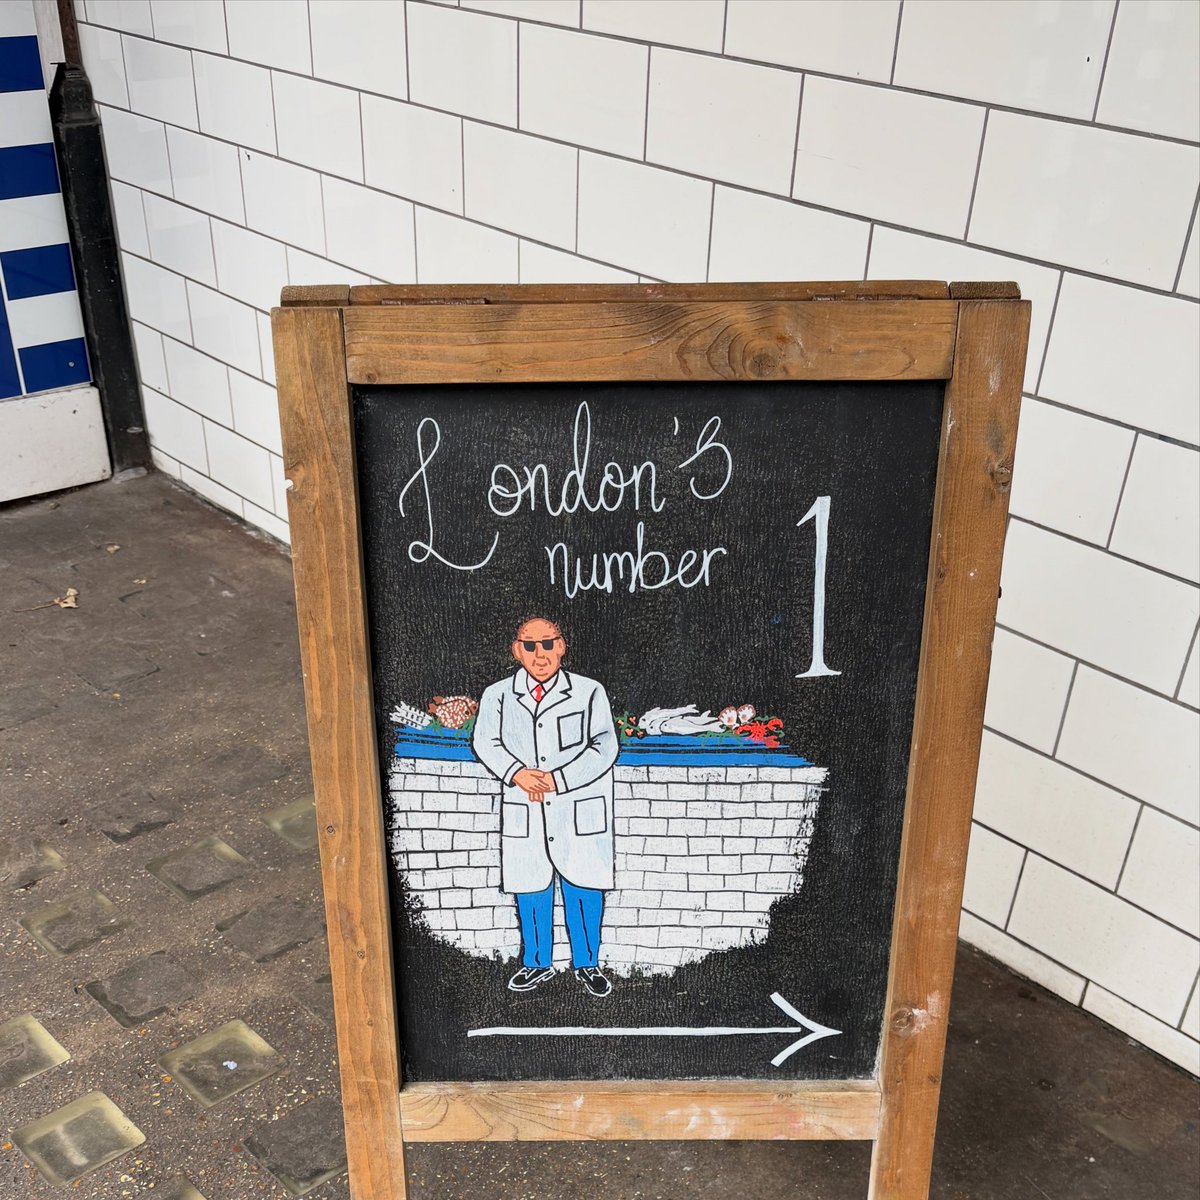 London's
number
1